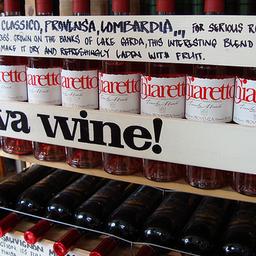 CLASSICO, PROVENSA, LOMBARDIA... FOR SERIOUS
GROWN ON THE BANKS OF LAKE GARDA, THIS INTERESTING BLEND
MAKE IT DRY AND REFRESHINGLY LADEN WITH FRUIT.
iaretto Chiaretto Chiaretto Chiaretto Chiaretto Chiaretto
va wine!
SAUVIGNON